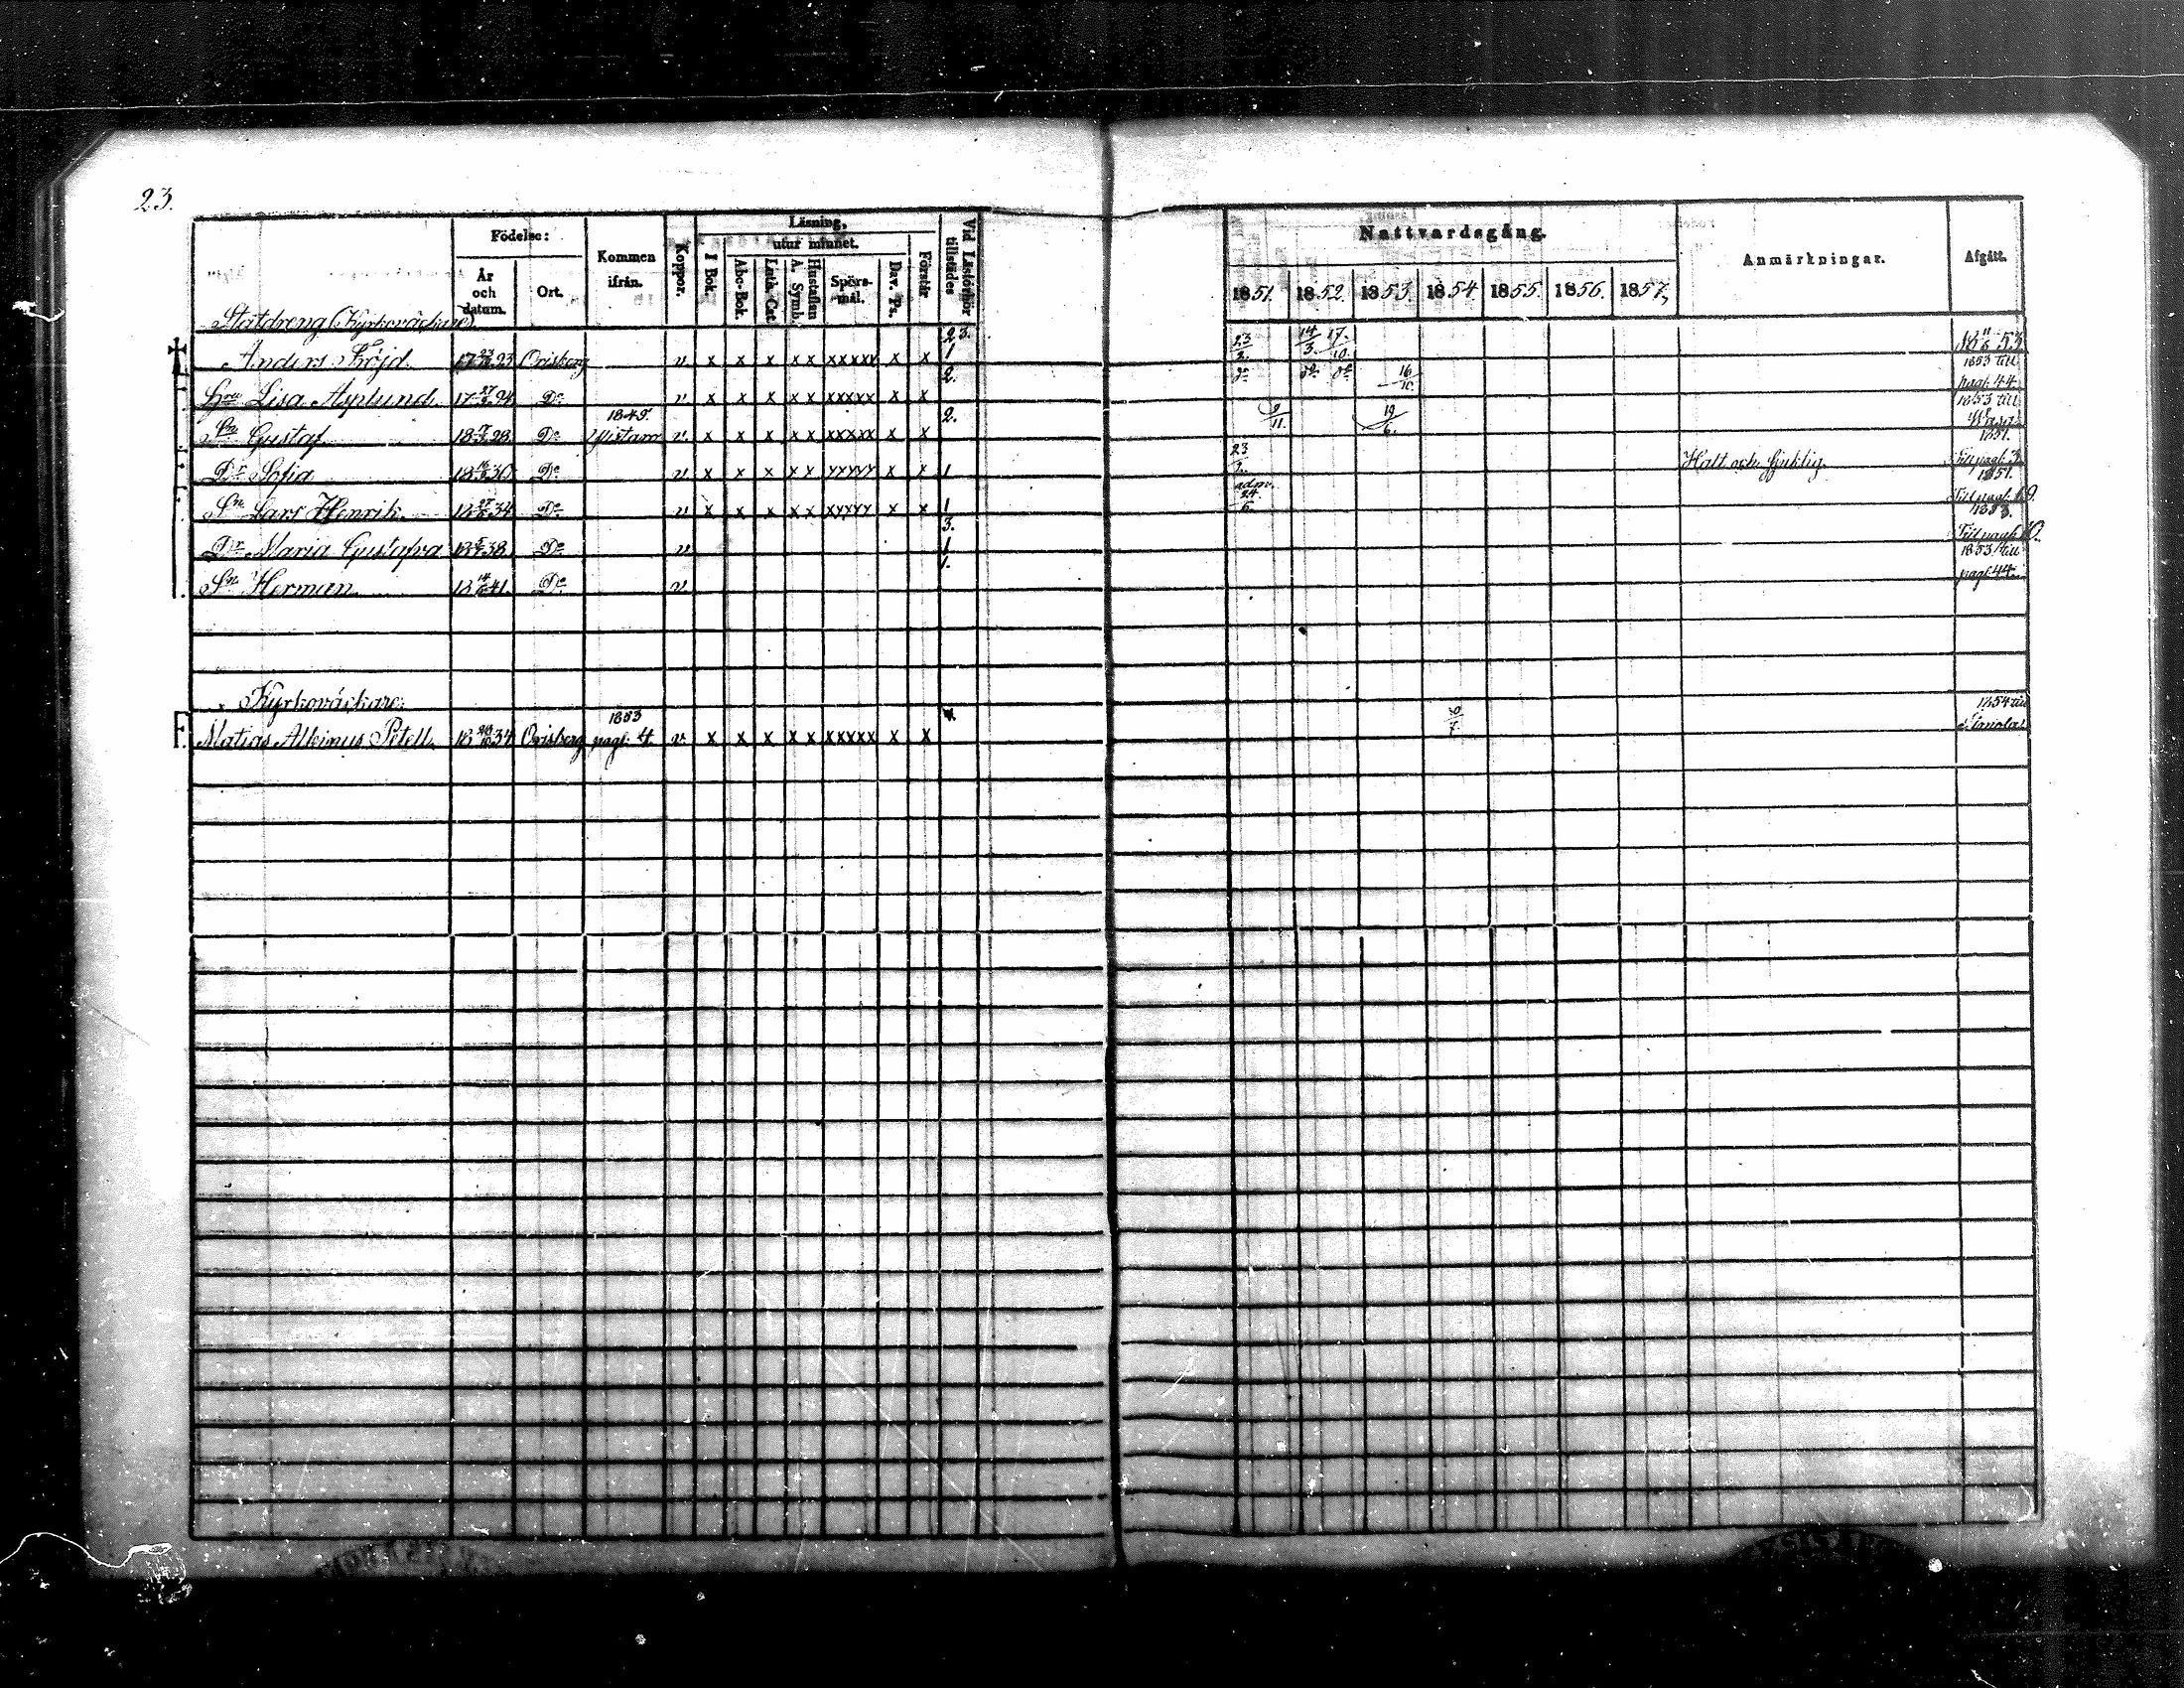 23.
Födelse: Kommen ifrån. Koppor. Läsning, Vid Läsförhör tillstädes
År och datum. Ort. I Bok. utur minnet. Abc-Bok. Luth. Cat. Hustaflan A. Symb. Spörsmål. Dav. Ps. Förstår
Nattvardsgång. Anmärkningar. Afgått.
1851. 1852. 1853. 1854. 1855. 1856. 1857.
Statdreng (Kyrkoväckare)
Anders Fröjd. 17 93 Orisberg v x x x x x xxxxx x x 1 23/2. 14/3. 17./10. 53
Hru Lisa Asplund. 17 27 94 Do v x x x x x xxxxx x x 2. do do do 16/10. 1853 till pag. 44
Sn Gustaf 18 28 Do 1849. v. x x x x x xxxxx x x 2. 9/11. 19/6. 1853 till Wasa
Dr Sofia 18 16 30 Do v x x x x x xxxxx x x 1 23 Halt och sjuklig. 1851. Till pag. 3.
Sn Lars Henrik 18 27 34 Do v x x x x x xxxxx x x 1 adm. 24/6. 1851. Till pag. 19.
Dr Maria Gustafva 18 38 Do v 3. 1 1853. Till pag. 10.
Sn Herman 18 14 41. Do v 1. 1853 till pag. 44.
Kyrkoväckare.
F. Matias Alleinus Petell. 18 34 Orisberg 1853 pag. 4. v. x x x x x xxxxx x x 4. 1854 till